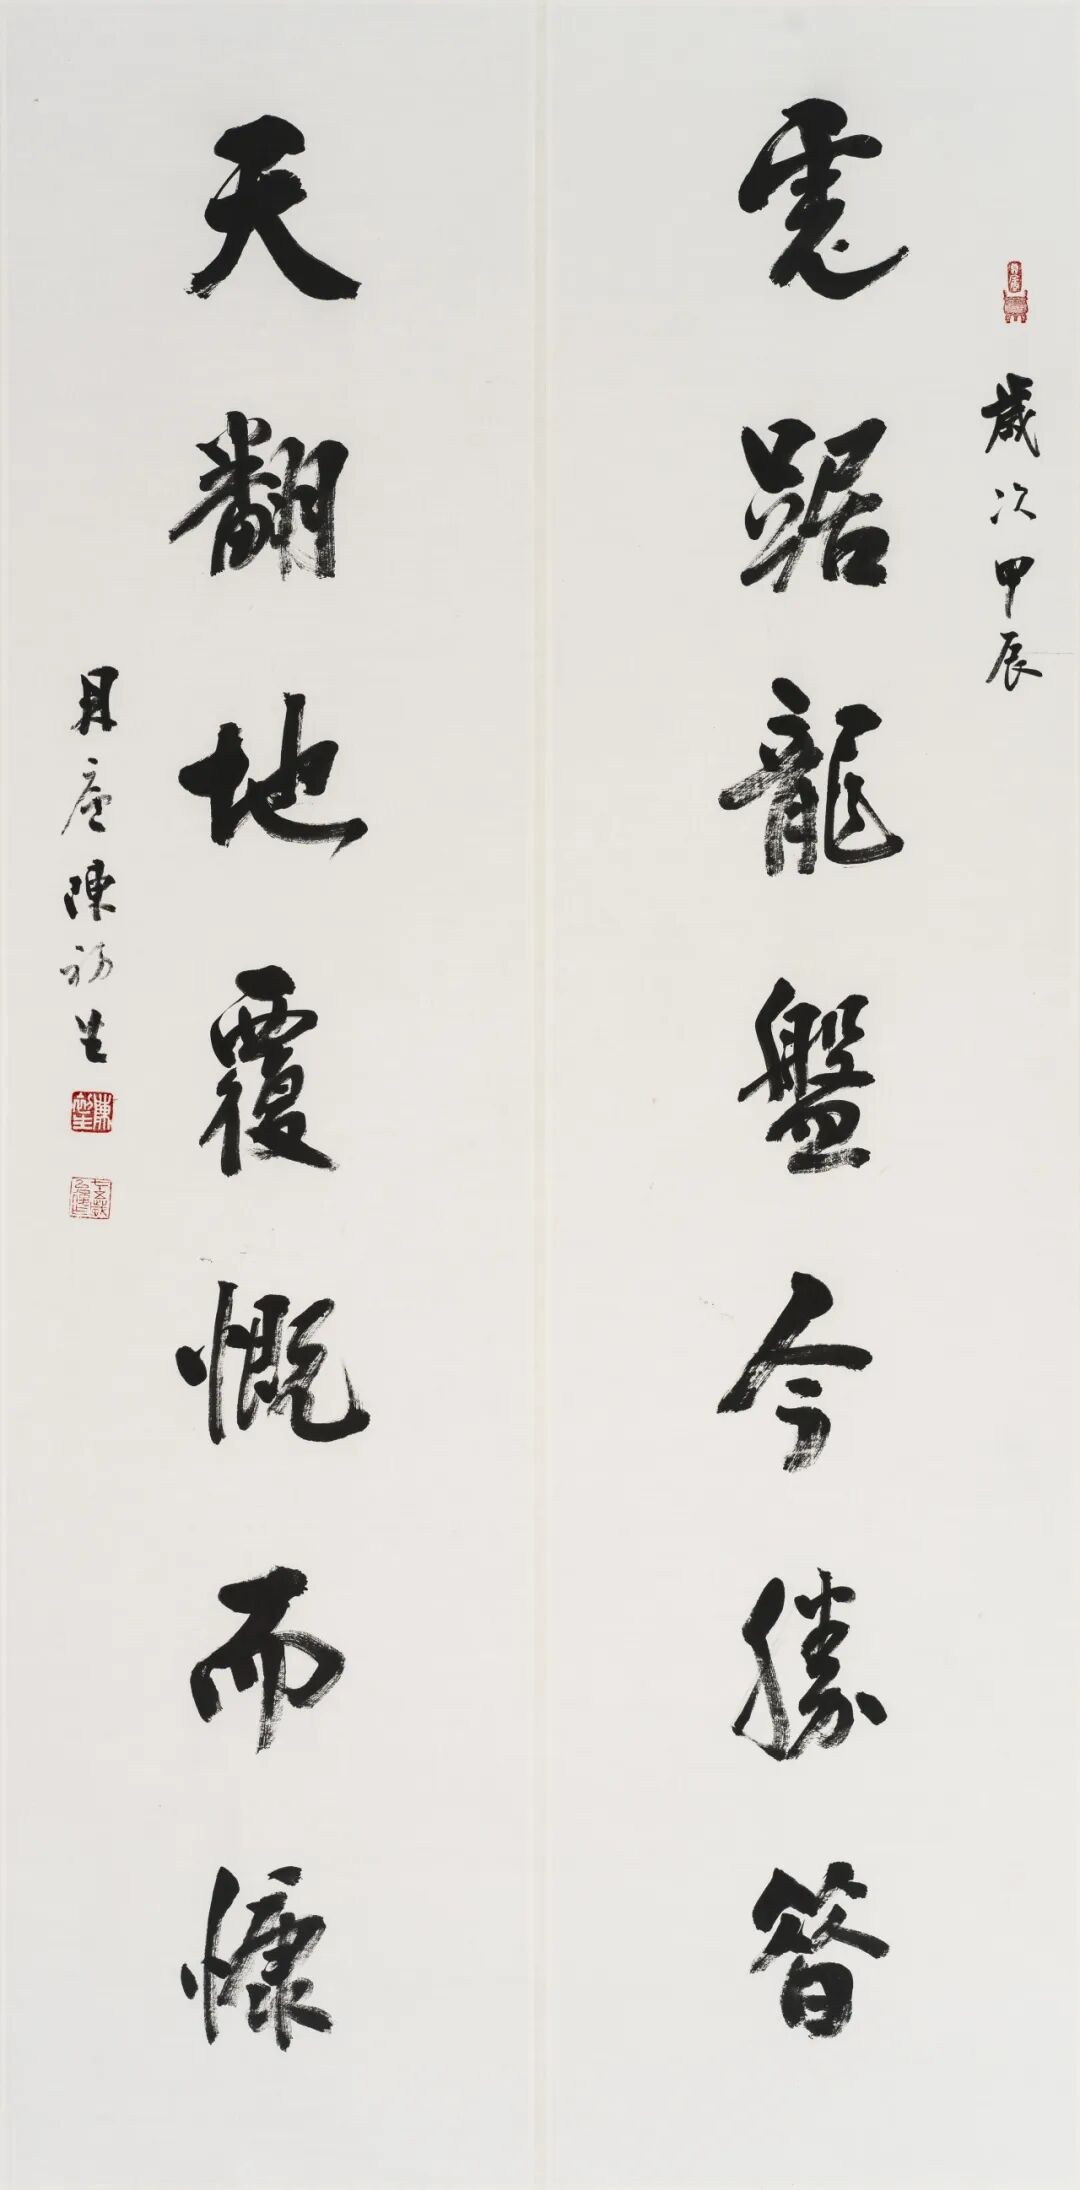 歲次甲辰
虎踞龍盤今勝昔
天翻地覆慨而慷
廬陳初生
陳初生